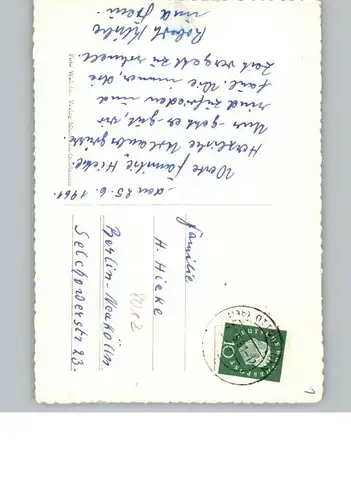 den 25.6.1961.
Werte Familie Hieke.
Herzliche Urlaubsgrüße
Uns geht es gut, wir
sind zufrieden und
faul. Wie immer, die
Zeit vergeht zu schnell.
Robert
und Frau.
Familie
H. Hieke
Berlin-Neukölln
Selchowerstr 23.
8012
DEUTSCHE BUNDESPOST
10